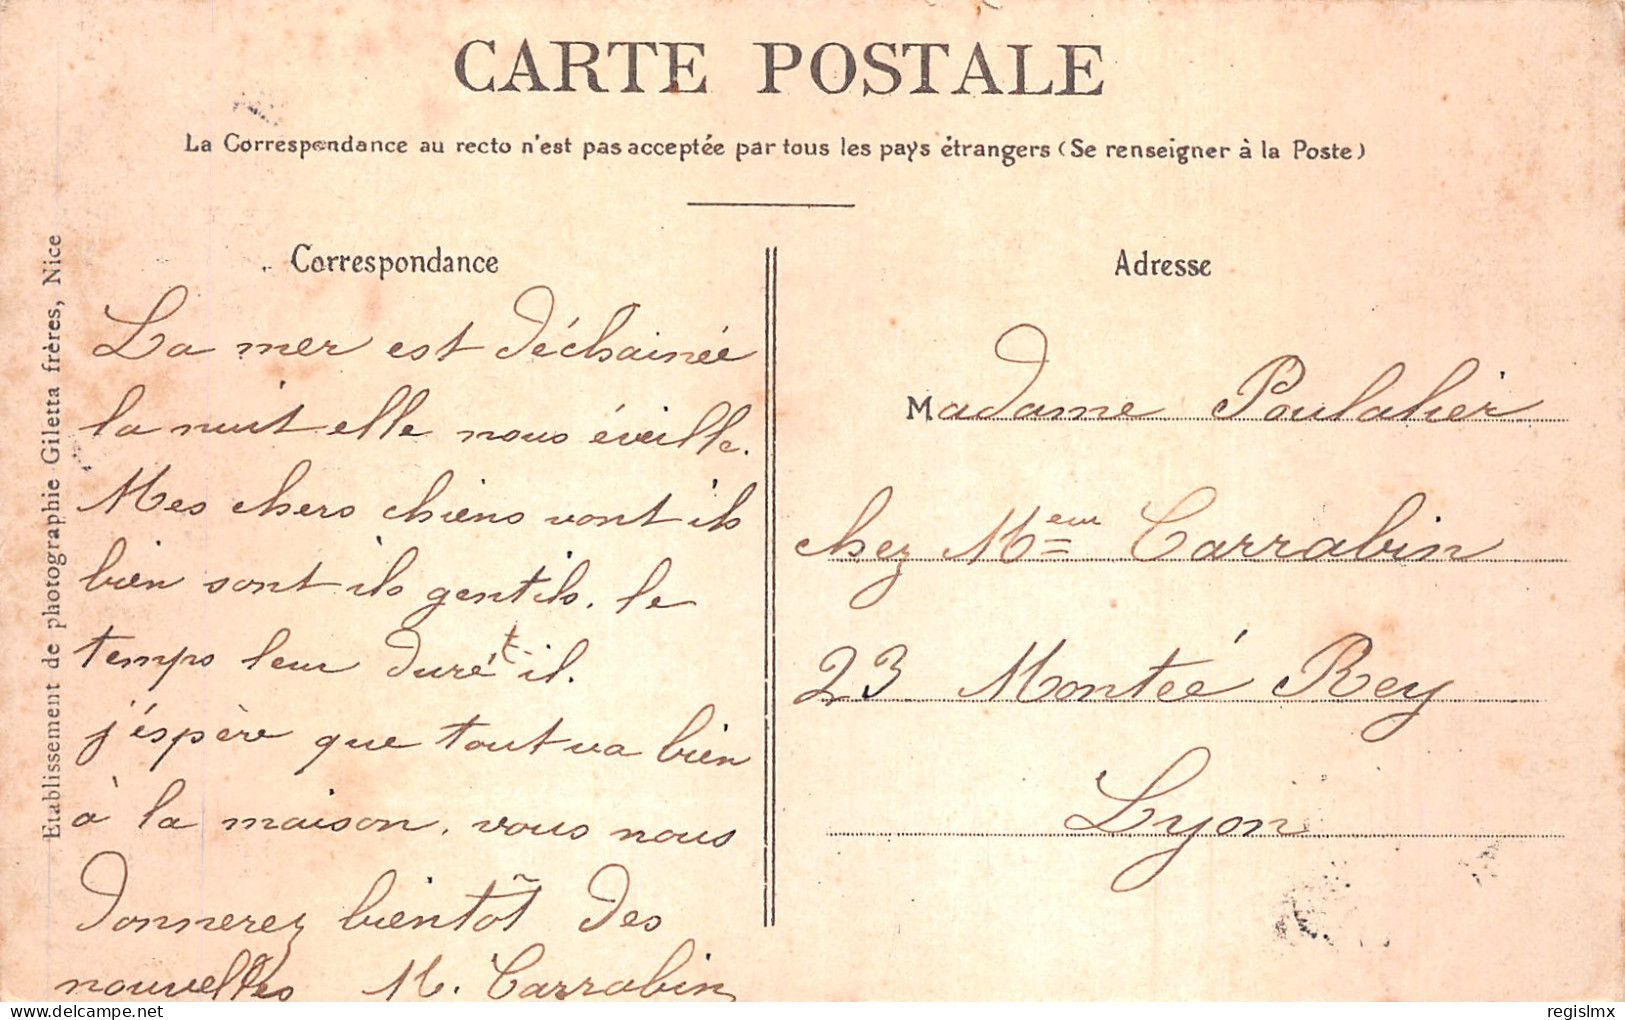 CARTE POSTALE
La Correspondance au recto n'est pas acceptée par tous les pays étrangers (Se renseigner à la Poste)
Correspondance
La mer est déchainée
la nuit elle nous éveille.
Mes chers chiens vont ils
bien sont ils gentils. le
temps leur dure t il.
j'éspère que tout va bien
à la maison. vous nous
donnerez bientôt des
nouvelles M. Carrabin
Adresse
Madame Poulalier
chez Mme Carrabin
23 Montée Rey
Lyon
Etablissement de photographie Giletta frères, Nice
www.delcampe.net
regislmx